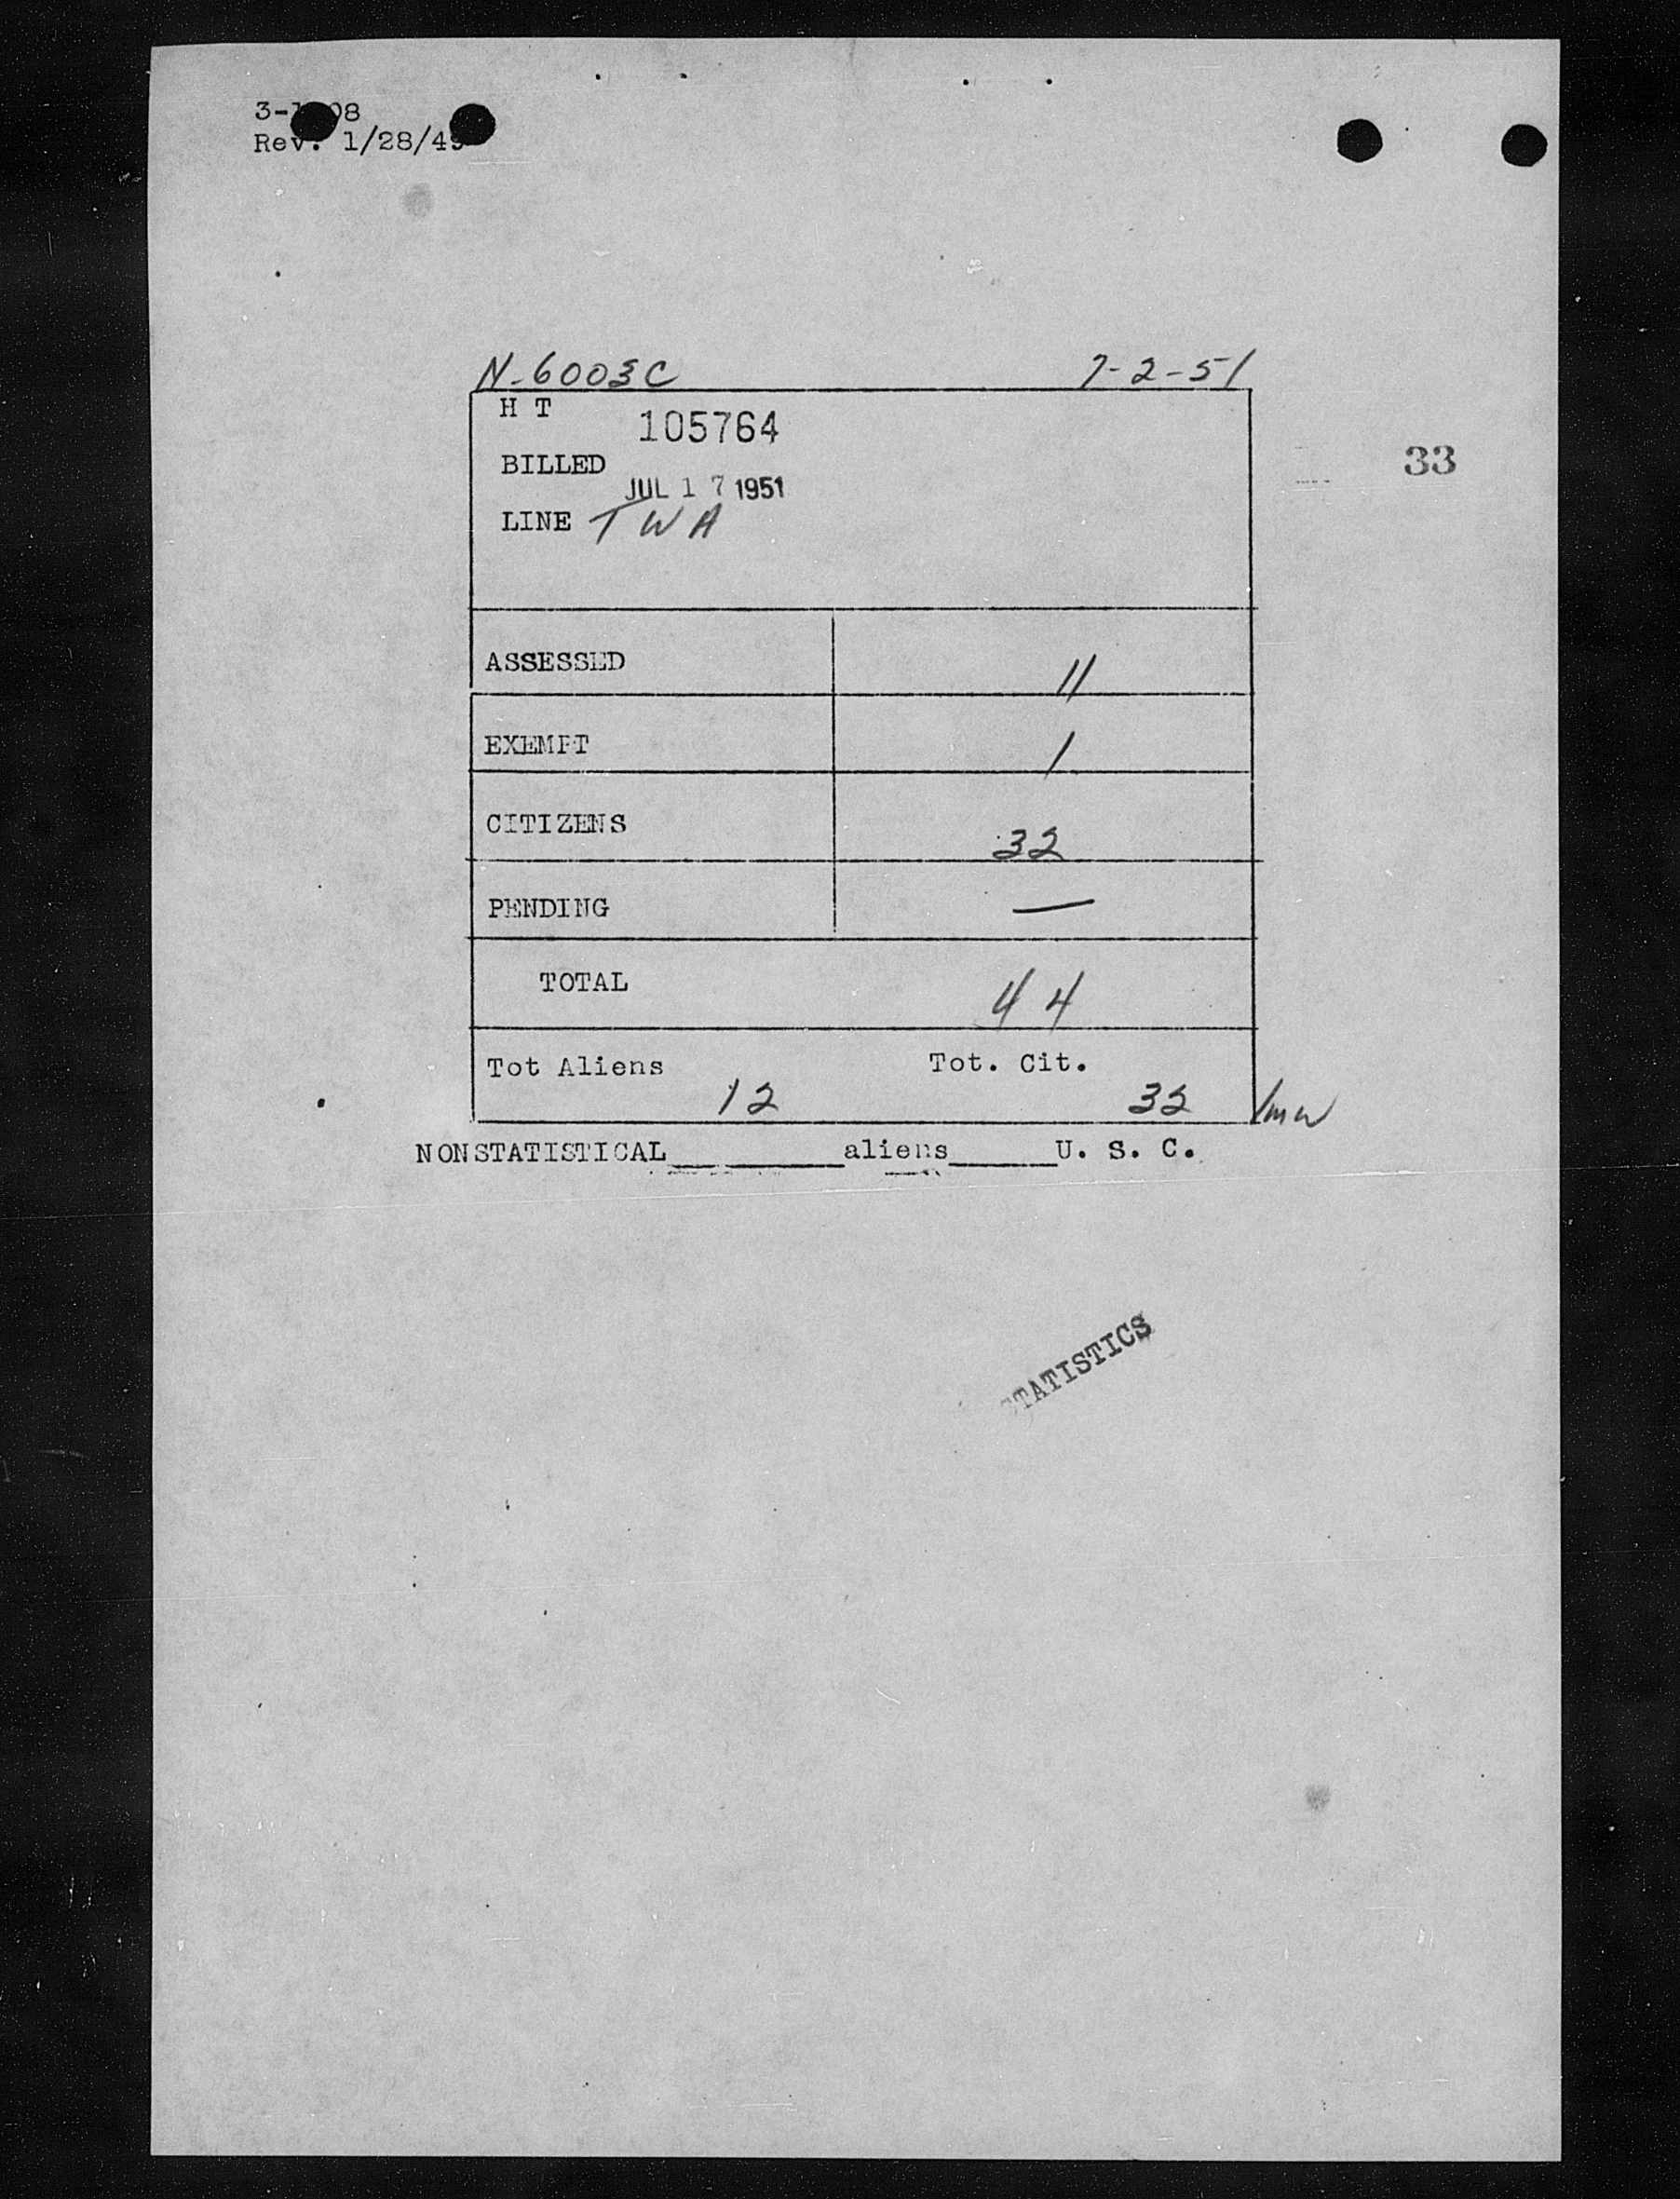 Rev. 1/28/49
N-6003C 7-2-51
H T 105764
33
BILLED
JUL 17 1951
LINE TWA
ASSESSED 11
EXEMPT 1
CITIZENS 32
PENDING —
TOTAL 44
Tot Aliens Tot. Cit.
12 32
NONSTATISTICAL________aliens_____U. S. C.
STATISTICS